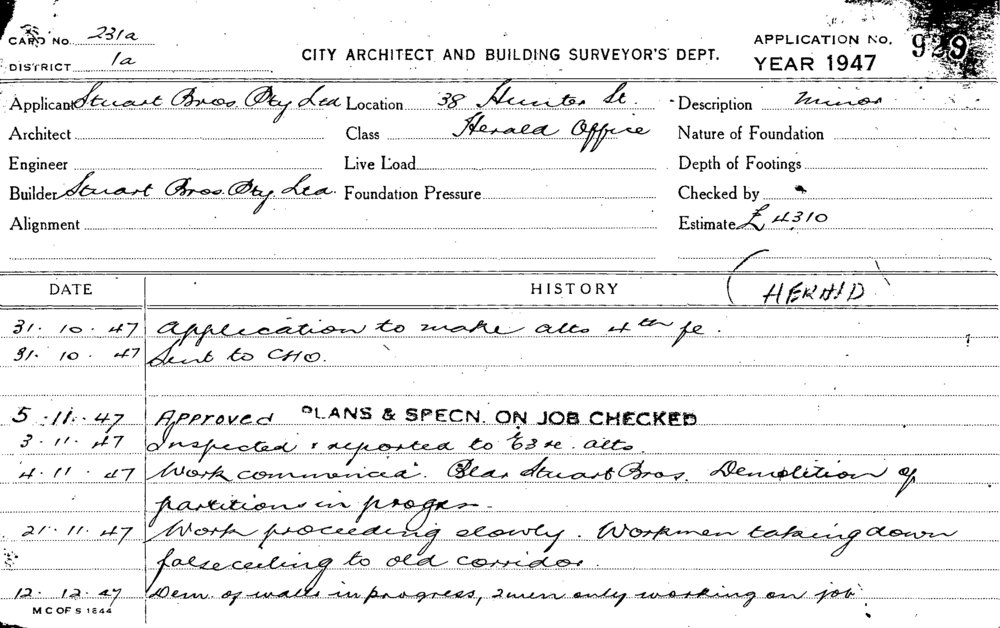 CARD No. 231a
DISTRICT 1a
CITY ARCHITECT AND BUILDING SURVEYOR'S DEPT.
APPLICATION No. 929
YEAR 1947
Applicant Stuart Bros. Pty Ltd Location 38 Hunter St. Description Minor
Architect Class Herald Office Nature of Foundation
Engineer Live Load Depth of Footings
Builder Stuart Bros. Pty. Ltd. Foundation Pressure Checked by
Alignment Estimate £4310
DATE HISTORY HERALD
31. 10. 47 Application to make alts 4th fl.
31. 10. 47 Sent to CHO.
5. 11. 47 Approved PLANS & SPECN. ON JOB CHECKED
3. 11. 47 Inspected & reported to E3 re. alts.
4. 11. 47 Work commenced. Stuart Bros. Demolition of
partitions in progress.
21. 11. 47 Work proceeding slowly. Workmen taking down
false ceiling to old corridor.
12. 12. 47 Dem. of walls in progress, 2 men only working on job
M C OF S 1844